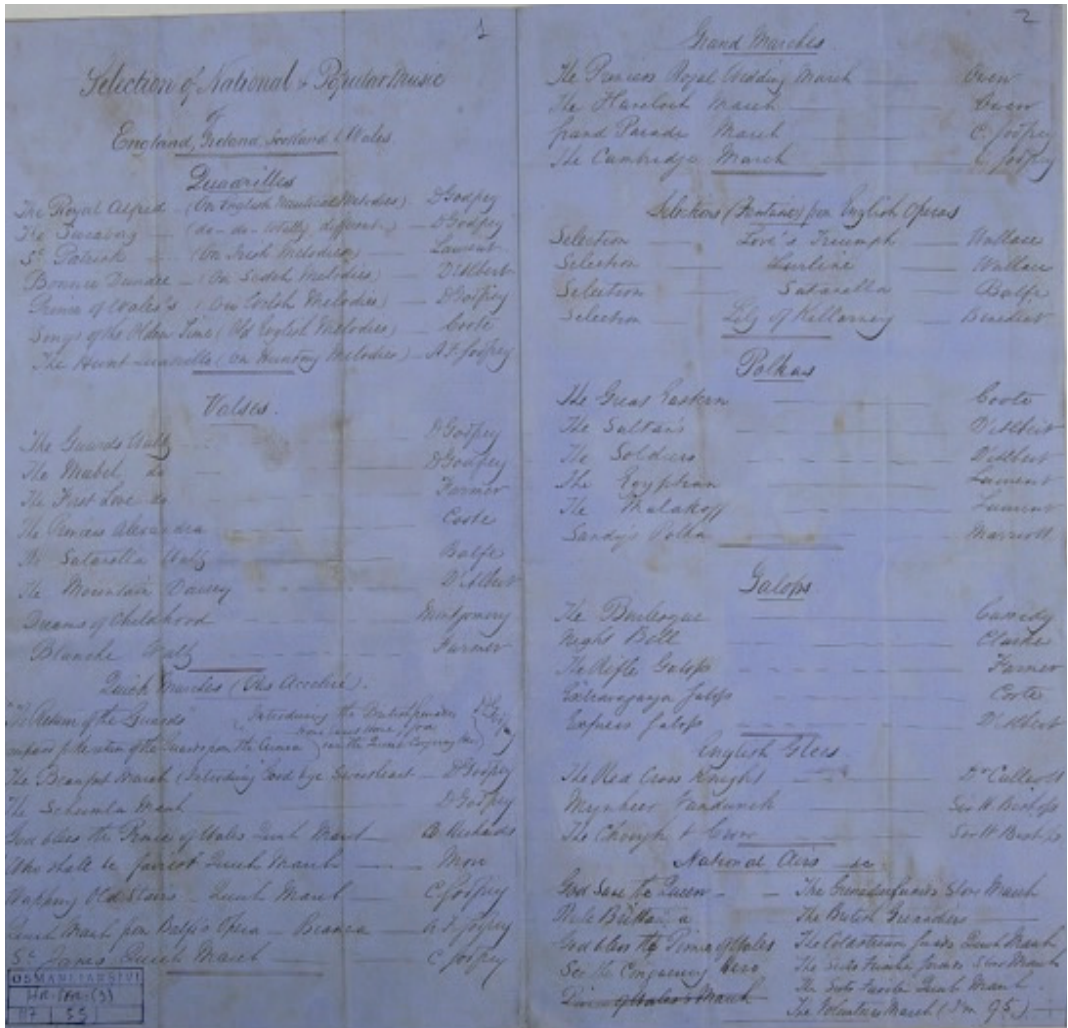 1
Selection of National & Popular Music
of
England, Ireland, Scotland & Wales
Quadrilles
The Royal Alfred - (On English Nautical Melodies) - D Godfrey
The - (do - do - totally different) - D Godfrey
St Patrick - (On Irish Melodies) - Laurent
Bonnie Dundee - (On Scotch Melodies) - D'Albert
Prince of Wales's - (On Welsh Melodies) - D Godfrey
Songs of the Olden Time (Old English Melodies) - Coote
The Hunt Quadrille (On Hunting Melodies) - A. F. Godfrey
Valses.
The Guards Waltz - D Godfrey
The Mabel do - D Godfrey
The First Love do - Farmer
The Princess Alexandra - Coote
The Satanella Waltz - Balfe
The Mountain Daisey - D'Albert
Dreams of Childhood - Montgomery
Blanche Waltz - Farmer
Quick Marches (Pas Accéléré).
"The Return of the Guards" (Introducing the British Grenadiers
D Godfrey
return of the Guards from the Crimea see the Conquering Hero)
The Beaufort March (Introducing Good bye Sweetheart - D Godfrey
The March D Godfrey
God bless the Prince of Wales Quick March - B. Richards
Who shall be fairest Quick March - Mori
Wapping Old Stairs - Quick March - C Godfrey
Quick March from Balfe's Opera - Bianca - A F Godfrey
St James Quick March - C Godfrey
OSMANLI ARŞİVİ
HR.SFR.(3)
117 | 55
2
Grand Marches
The Princess Royal Wedding March - Owen
The Havelock March - Owen
Grand Parade March - C. Godfrey
The Cambridge March - C. Godfrey
Selections (Fantaisie) from English Operas
Selection - Love's Triumph - Wallace
Selection - Lurline - Wallace
Selection - Satanella - Balfe
Selection - Lily of Killarney - Benedict
Polkas
The Great Eastern - Coote
The Sultan's - D'Albert
The Soldiers - D'Albert
The Egyptian - Laurent
The Malakoff - Laurent
Sandy's Polka - Marriott
Galops
The Burlesque - Cassidy
Night Bell - Clarke
The Rifle Galop - Farmer
Extravaganza Galop - Coote
Express Galop - D'Albert
English Glees
The Red Cross Knight - Dr Callcott
Mynheer Vandunck - Sir H Bishop
The Chough & Crow - Sir H Bishop
National Airs &c.
God Save the Queen - The Grenadier Guards Slow March
Rule Brittania The British Grenadiers
God bless the Prince of Wales The Coldstream Guards Quick March
See the Conquering hero The Scots Fusilier Guards Slow March
Prince of Wales's March The Scots Fusilier Quick March.
The Volunteers March (I'm 95)